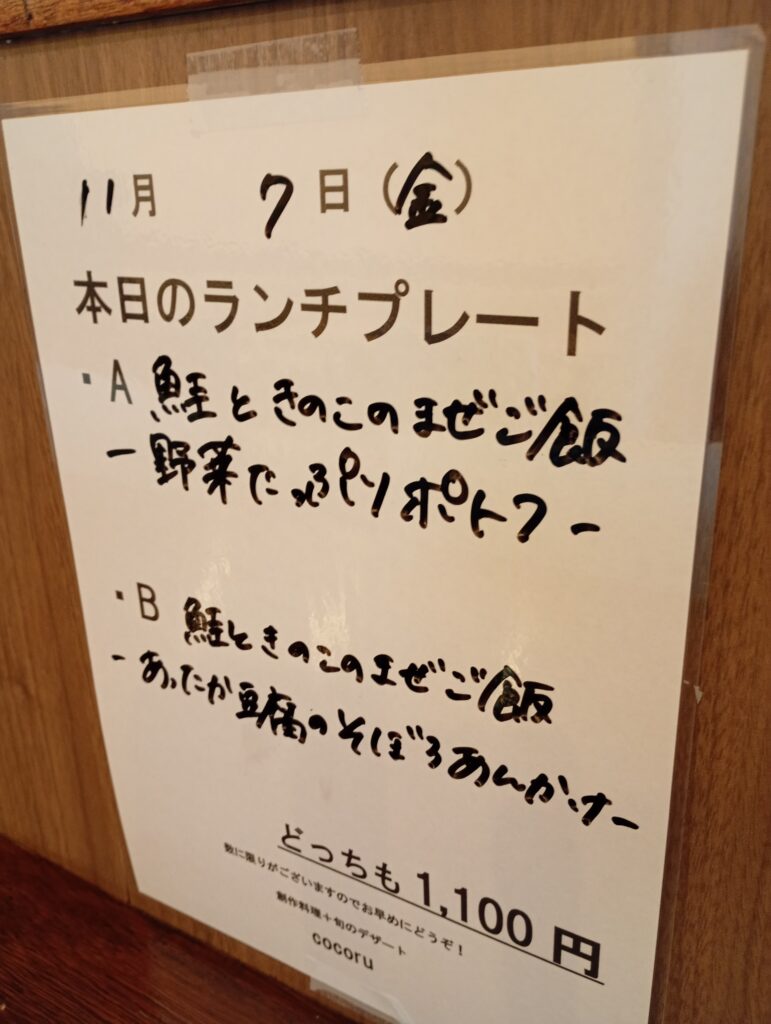 11月 7日(金)
本日のランチプレート
・A 鮭ときのこのまぜご飯
ー野菜たっぷりポトフー
・B 鮭ときのこのまぜご飯
ーあったか豆腐のそぼろあんかけー
どっちも1,100円
数に限りがございますのでお早めにどうぞ！
創作料理+旬のデザート
cocoru